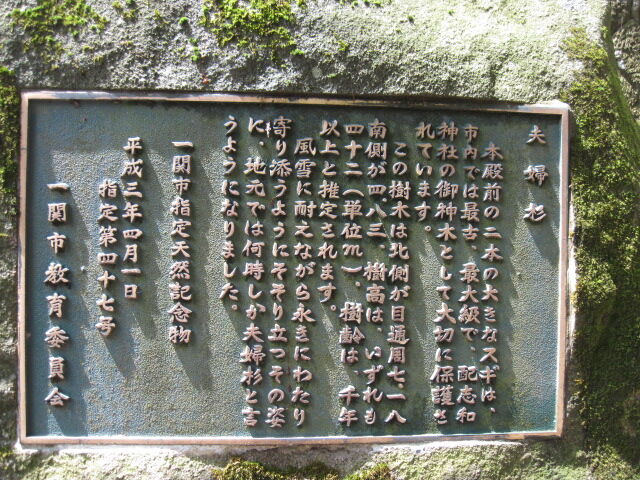 夫婦杉
本殿前の二本の大きなスギは、
市内では最古、最大級で、配志和
神社の御神木として大切に保護さ
れています。
この樹木は北側が目通周七、一八
南側が四、八三、樹高は、いずれも
四十二(単位m)、樹齢は、千年
以上と推定されます。
風雪に耐えながら永きにわたり
寄り添うようにそそり立つその姿
に、地元では何時しか夫婦杉と言
うようになりました。
一関市指定天然記念物
平成三年四月一日
指定第四十七号
一関市教育委員会